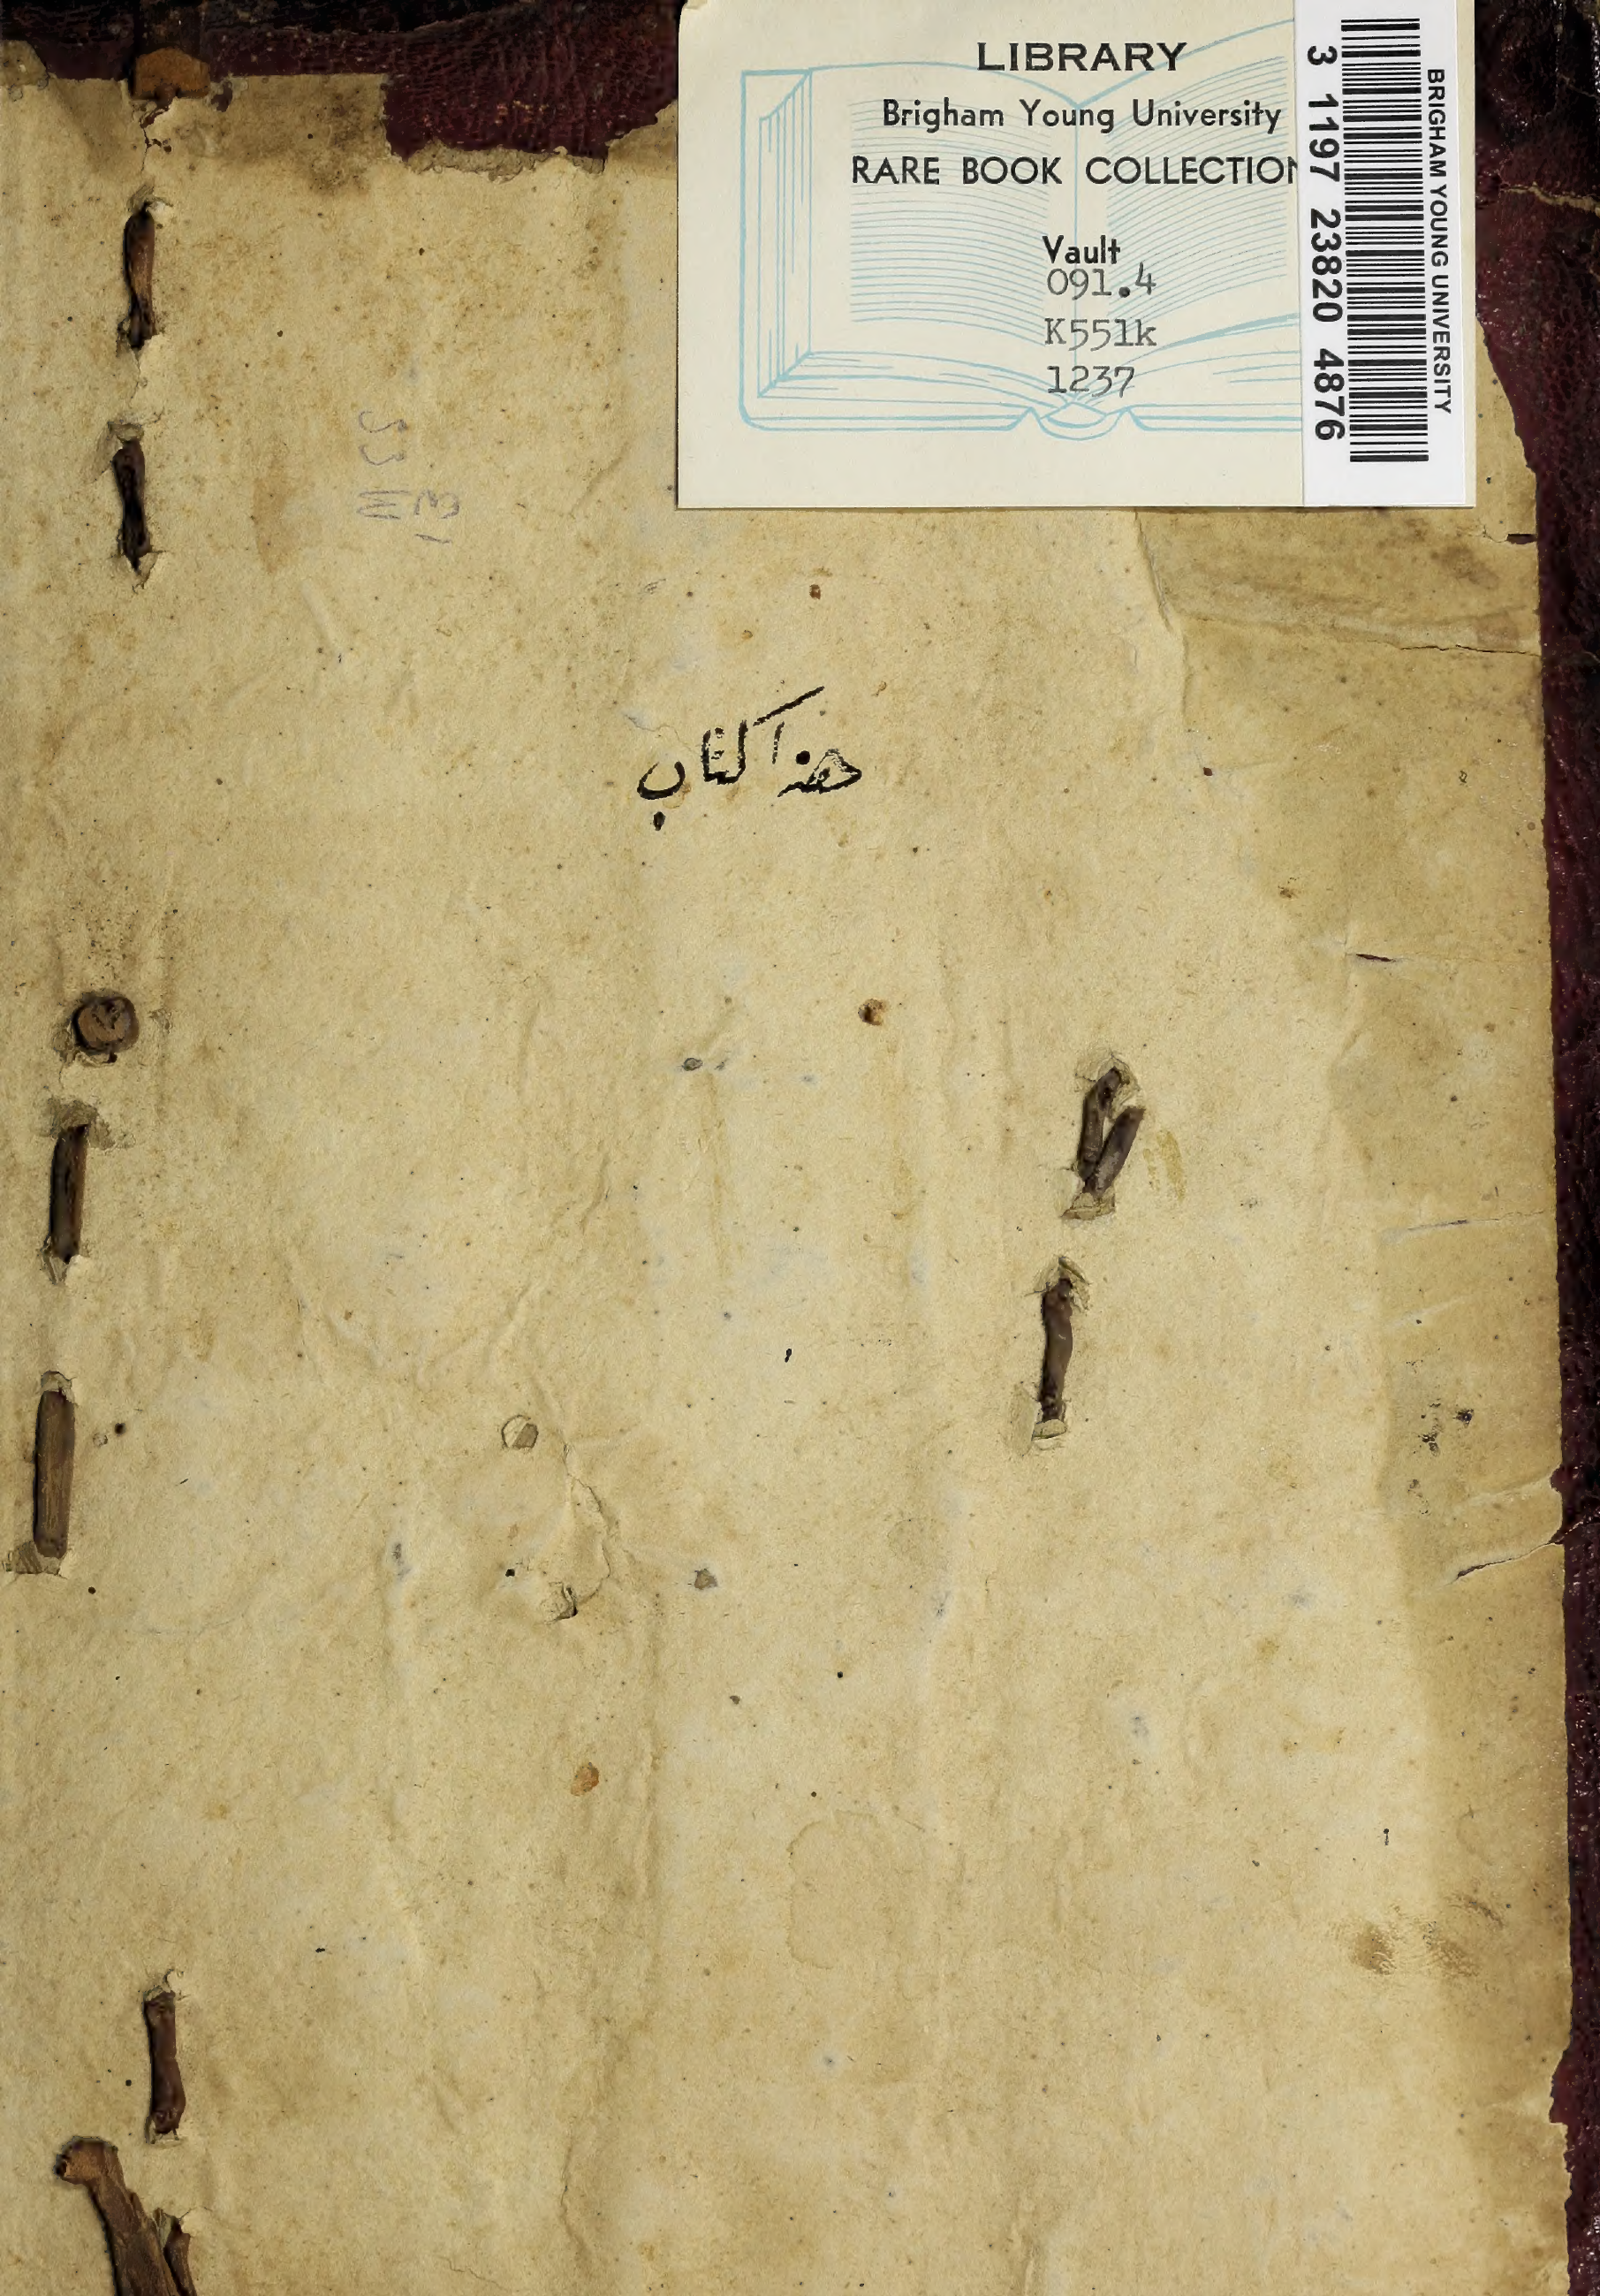 LIBRARY
Brigham Young University
RARE BOOK COLLECTION
Vault
091.4
K551k
1237
3 1197 23820 4876
BRIGHAM YOUNG UNIVERSITY
هذا كتاب